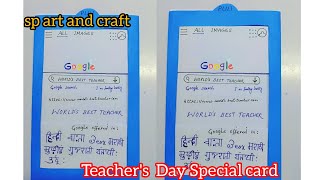 sp art and craft
ALL IMAGES
Google
WORLD'S BEST TEACHER
Google Search I'm feeling lucky
WORLD'S BEST TEACHER
Google offered in:
हिन्दी বাংলা తెలుగు मराठी
தமிழ் ગુજરાતી ਪੰਜਾਬੀ
ALL IMAGES
Google
WORLD'S BEST TEACHER
Google Search I'm feeling lucky
WORLD'S BEST TEACHER
Google offered in:
हिन्दी বাংলা తెలుగు मराठी
தமிழ் ગુજરાતી ਪੰਜਾਬੀ
Teacher's Day Special card